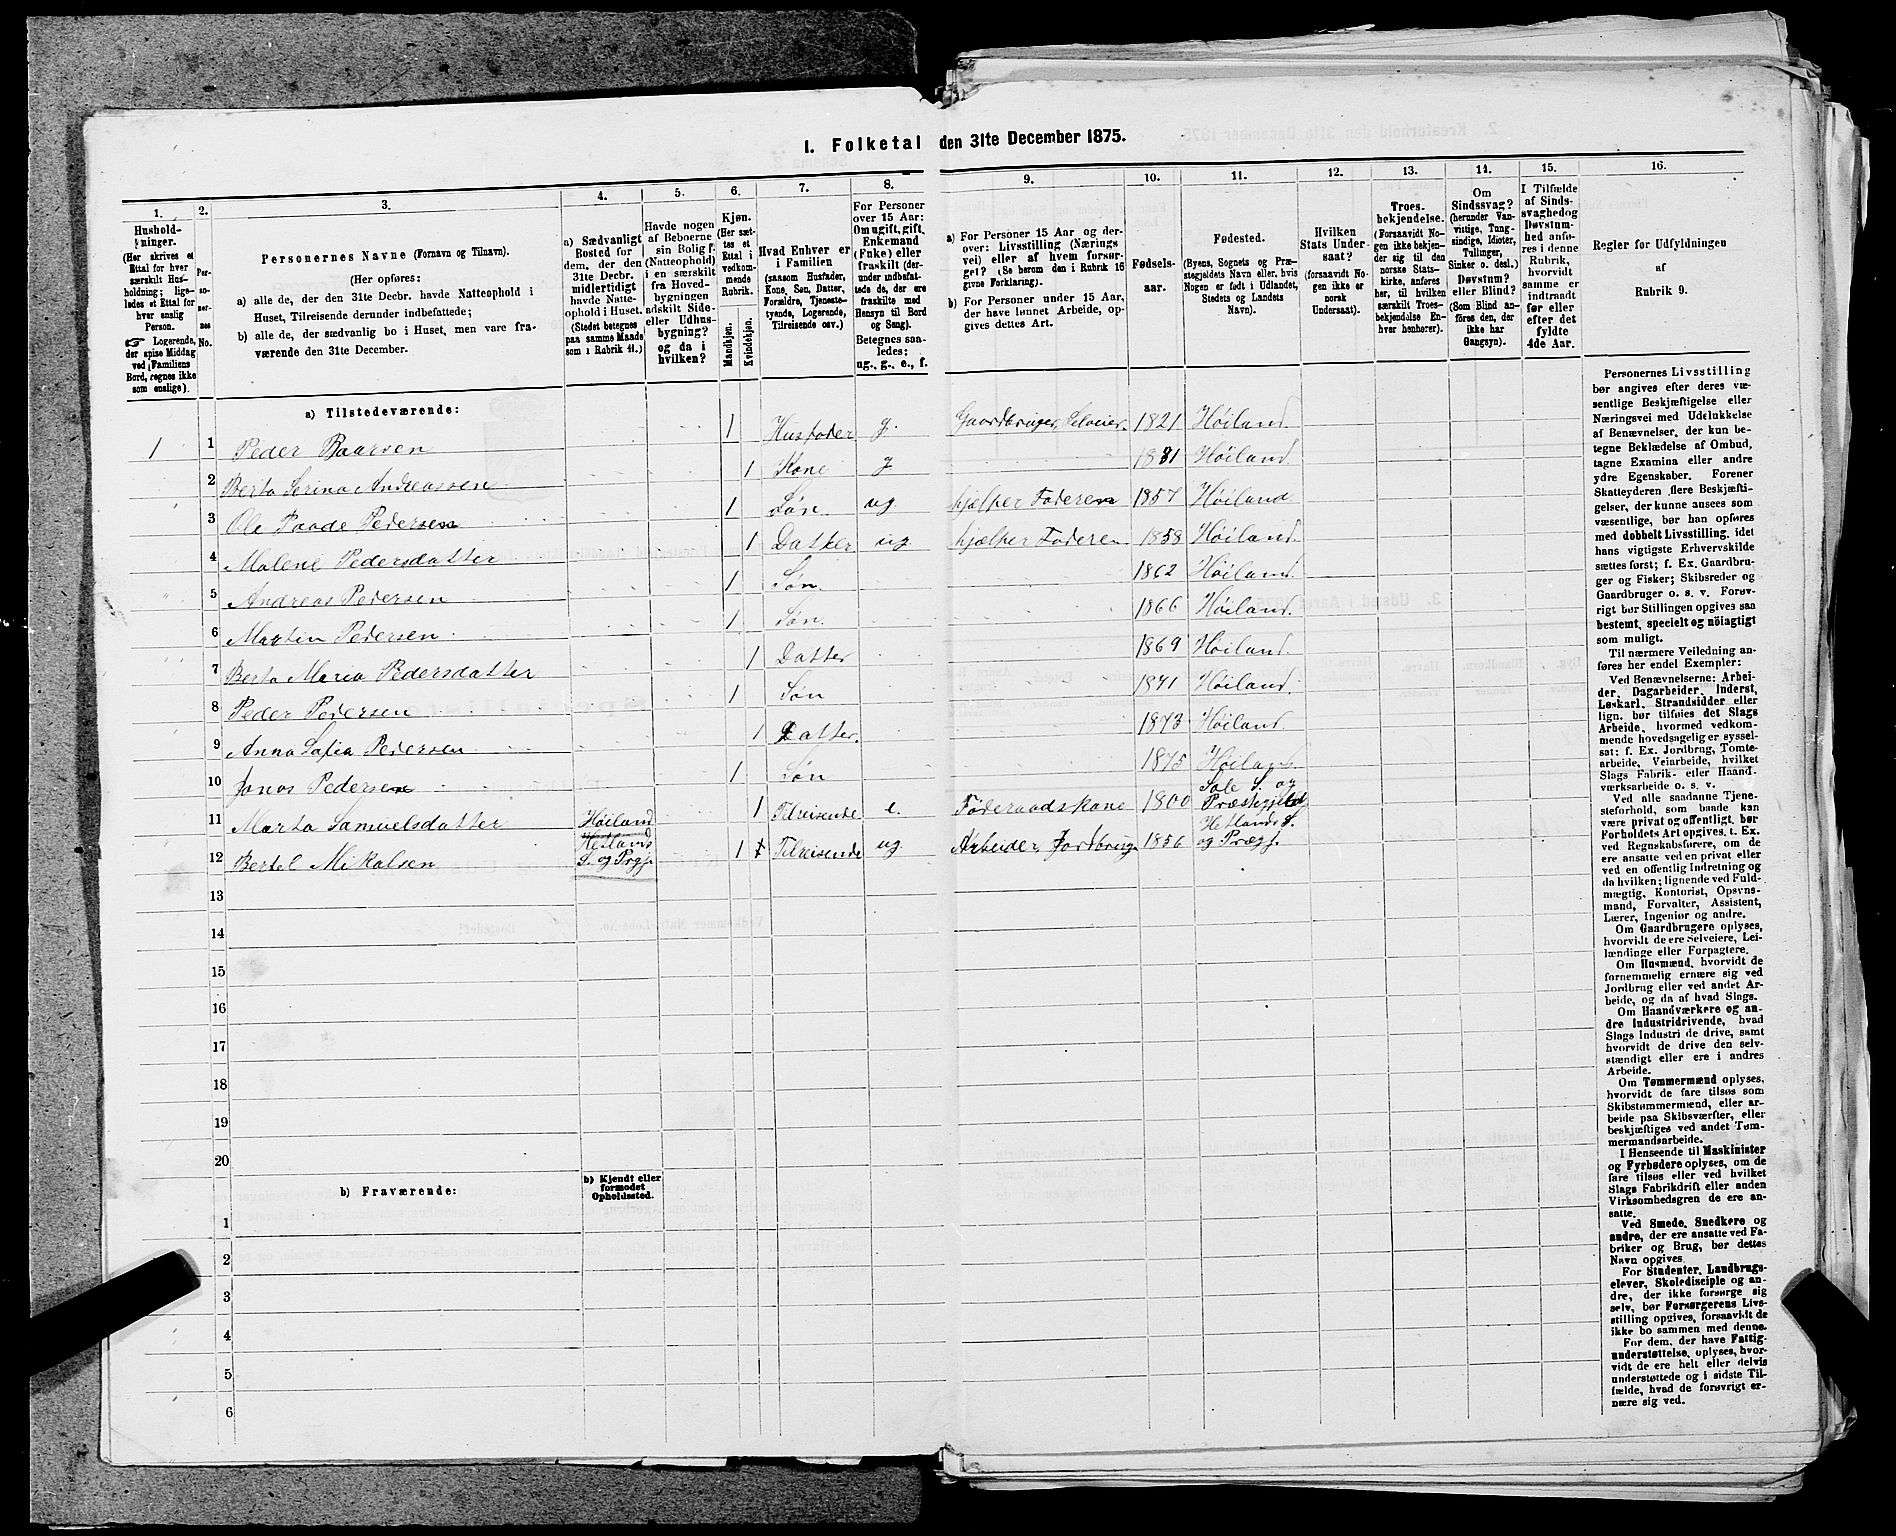 I. Folketal den 31te December 1875.
1. 2. 3. 4. 5. 6. 7. 8. 9. 10. 11. 12. 13. 14. 15. 16.
Hushold-
ninger.
(Her skrives et
Ettal for hver
særskilt Hus-
holdning; lige-
ledes et Ettal for
hver enslig
Person.
☞ Logerende,
der spise Middag
ved Familiens
Bord, regnes ikke
som enslige).
Per-
so-
ner-
nes
No.
Personernes Navne (Fornavn og Tilnavn).
(Her opføres:
a) alle de, der den 31te Decbr. havde Natteophold i
Huset, Tilreisende derunder indbefattede;
b) alle de, der sædvanlig bo i Huset, men vare fra-
værende den 31te December.
a) Sædvanligt
Bosted for
dem, der den
31te Decbr.
midlertidigt
havde Natte-
ophold i Huset.
(Stedet betegnes
paa samme Maade
som i Rubrik 11.)
Havde nogen
af Beboerne
sin Bolig
(Natteophold)
i en særskilt
fra Hoved-
bygningen
adskilt Side-
eller Udhus-
bygning?
og da i
hvilken?
Kjøn.
(Her sæt-
tes et
Ettal i
vedkom-
mende
Rubrik.
Mandkjøn.
Kvindekjøn.
Hvad Enhver er
i Familien
(saasom Husfader,
Kone, Søn, Datter,
Forældre, Tjeneste-
tyende, Logerende,
Tilreisende osv.)
For Personer
over 15 Aar:
Om ugift, gift,
Enkemand
(Enke) eller
fraskilt (der-
under indbefat-
tede de, der ere
fraskilte med
Hensyn til Bord
og Seng).
Betegnes saa-
ledes:
ug., g., e., f.
a) For Personer 15 Aar og der-
over: Livsstilling (Nærings
vei) eller af hvem forsør-
get? (Se herom den i Rubrik 16
givne Forklaring).
b) For Personer under 15 Aar,
der have lønnet Arbeide, op-
gives dettes Art.
Fødsels-
aar.
Fødested.
(Byens, Sognets og Præ-
stegjeldets Navn eller, hvis
Nogen er født i Udlandet,
Stedets og Landets
Navn).
Hvilken
Stats Under-
saat?
(forsaavidt No-
gen ikke er
norsk
Undersaat).
Troes-
bekjendelse.
(Forsaavidt No-
gen ikke bekjen-
der sig til den
norske Stats-
kirke, anføres
her, til hvilken
særskilt Troes-
bekjendelse En-
hver henhører).
Om
Sindssvag?
(herunder Van-
vittige, Tung-
sindige, Idioter,
Tullinger,
Sinker o. desl.)
Døvstum?
eller Blind?
(Som Blind an-
føres den, der
ikke har
Gangsyn).
I Tilfælde
af Sinds-
svaghedog
Døvstum-
hed anfø-
res i denne
Rubrik,
hvorvidt
samme er
indtraadt
før eller
efter det
fyldte
4de Aar.
Regler for Udfyldningen
af
Rubrik 9.
a) Tilstedeværende:
1 1 Peder Baarsen 1 Husfader g. Gaardbruger, Selveier. 1821 Høiland
2 Berta Serina Andreassen 1 Kone g 1831 Høiland.
3 Ole Paade Pedersen 1 Søn. ug. hjelper Faderen 1857 Høiland
4 Malene Pedersdatter 1 Datter ug hjælper Faderen 1858 Høiland.
5 Andreas Pedersen 1 Søn 1862 Høiland.
6 Martin Pedersen 1 Søn. 1866 Høiland.
7 Berta Maria Pedersdatter 1 Datter 1869 Høiland.
8 Peder Pedersen 1 Søn 1871 Høiland.
9 Anna Sofia Pedersen 1 Datter. 1873 Høiland.
10 Jonas Pedersen 1 Søn 1875 Høiland
11 Marta Samuelsdatter Høiland 1 Tilreisende e. Føderaadskone 1800 Sole S. og
Præstegjeld
12 Bertel Mikalsen Hetlands
S. og Prgj. 1 Tilreisende ug Arbeider Jordbrug 1856 Hetlands S.
og Prægj.
13
14
15
16
17
18
19
20
b) Fraværende:
b) Kjendt eller
formodet
Opholdssted.
1
2
3
4
5
6
Personernes Livsstilling
bør angives efter deres væ-
sentlige Beskjæftigelse eller
Næringsvei med Udelukkelse
af Benævnelser, der kun be-
tegne Beklædelse af Ombud,
tagne Examina eller andre
ydre Egenskaber. Forener
Skatteyderen flere Beskjæfti-
gelser, der kunne ansees som
væsentlige, bør han opføres
med dobbelt Livsstilling, idet
hans vigtigste Erhvervskilde
sættes først; f. Ex. Gaardbru-
ger og Fisker; Skibsreder og
Gaardbruger o. s. v. Forøv-
rigt bør Stillingen opgives saa
bestemt, specielt og nøiagtigt
som muligt.
Til nærmere Veiledning an-
føres her endel Exempler:
Ved Benævnelserne: Arbei-
der, Dagarbeider, Inderst,
Løskarl, Strandsidder eller
lign. bør tilføies det Slags
Arbeide, hvormed vedkom-
mende hovedsagelig er syssel-
sat; f. Ex. Jordbrug, Tomte-
arbeide, Veiarbeide, hvilket
Slags Fabrik- eller Haand-
værksarbeide o. s. v.
Ved alle saadanne Tjene-
steforhold, som baade kan
være privat og offentligt, bør
Forholdets Art opgives, t. Ex.
ved Regnskabsførere, om de
ere ansatte ved en privat eller
ved en offentlig Indretning og
da hvilken; lignende ved Fuld-
mægtig, Kontorist, Opsyns-
mand, Forvalter, Assistent,
Lærer, Ingeniør og andre.
Om Gaardbrugere oplyses,
hvorvidt de ere Selveiere, Lei-
lændinge eller Forpagtere.
Om Husmænd, hvorvidt de
fornemmelig ernære sig ved
Jordbrug eller ved andet Ar-
beide, og da af hvad Slags.
Om Haandværkere og an-
dre Industridrivende, hvad
Slags Industri de drive, samt
hvorvidt de drive den selv-
stændigt eller ere i andres
Arbeide.
Om Tømmermænd oplyses,
hvorvidt de fare tilsøs som
Skibstømmermænd, eller ar-
beide paa Skibsværfter, eller
beskjæftiges ved andet Tøm-
mermandsarbeide.
I Henseende til Maskinister
og Fyrbødere oplyses, om de
fare tilsøs eller ved hvilket
Slags Fabrikdrift eller anden
Virksomhedsgren de ere an-
satte.
Ved Smede, Snedkere og
andre, der ere ansatte ved Fa-
briker og Brug, bør dettes
Navn opgives.
For Studenter, Landbrugs-
elever, Skoledisciple og an-
dre, der ikke forsørge sig
selv, bør Forsørgerens Livs-
stilling opgives, forsaavidt de
ikke bo sammen med denne.
For dem, der have Fattig-
understøttelse, oplyses, hvor-
vidt de ere helt eller delvis
understøttede og i sidste Til-
fælde, hvad de forøvrigt er-
nære sig ved.